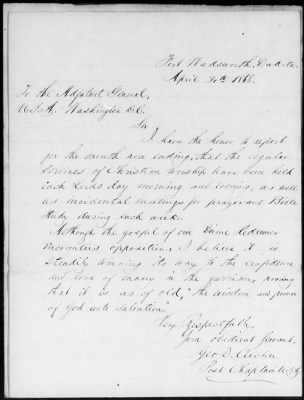 Fort Wadsworth, Dakota.
April 30th 1868.
To the Adjutant General,
U.S.A. Washington D.C.
Sir
I have the honor to report
for the month now ending, that the regular
services of Christian Worship have been held
each Lord's day morning and evening, as well
as incidental meetings for prayer and Bible
Study during each week.
Although the gospel of our Divine Redeemer
encounters opposition, I believe it is
steadily winning its way to the confidence
and love of many in the garrison, proving
that it is as of old, "the wisdom and power
of God unto Salvation."
Very Respectfully,
Your obedient Servant.
Geo. D.
Post Chaplain U.S.A.